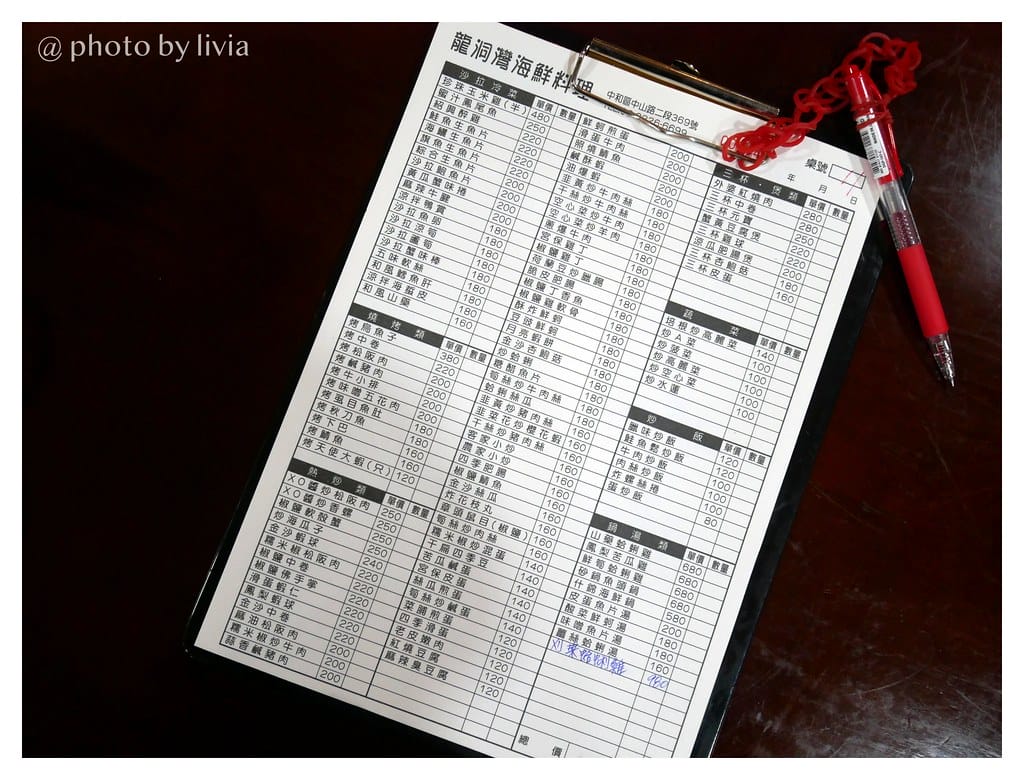 @ photo by livia
龍洞灣海鮮料理
中和區中山路二段369號
桌號
年 月 日
沙拉冷菜 單價 數量
珍珠玉米雞(半) 480
蜜汁鳳尾魚 250
紹興醉雞 220
鮭魚生魚片 220
海鱺生魚片 220
旗魚生魚片 220
綜合生魚片 220
沙拉鮑魚片 200
黃瓜蟹味捲 200
麻辣牛腱 200
涼拌鴨賞 180
沙拉魚卵 180
沙拉涼筍 180
沙拉蘆筍 180
沙拉蟹味棒 180
五味軟絲 180
和風鱈魚肝 180
涼拌海蜇皮 180
和風山藥 160
燒烤類 單價 數量
烤烏魚子 380
烤中卷 220
烤松阪肉 220
烤鹹豬肉 200
烤牛小排 200
烤味噌五花肉 200
烤風目魚肚 200
烤秋刀魚 180
烤下巴 160
烤鯖魚 160
烤天使大蝦(只) 120
熱炒類 單價 數量
XO醬炒松阪肉 250
XO醬炒香螺 250
椒鹽軟殼蟹 250
炒海瓜子 250
金沙蝦球 240
糯米椒松阪肉 220
椒鹽中卷 220
椒鹽佛手掌 220
滑蛋蝦仁 220
鳳梨蝦球 220
金沙中卷 220
麻油松阪肉 200
糯米椒炒牛肉 200
蒜香鹹豬肉 200
鮮蚵煎蛋 200
滑蛋牛肉 200
照燒鯖魚 200
鹹酥蝦 200
油爆蝦 200
韭黃炒牛肉絲 180
干絲炒牛肉絲 180
空心菜炒牛肉 180
空心菜炒羊肉 180
蔥爆牛肉 180
宮保雞丁 180
椒鹽雞丁 180
荷蘭豆炒臘腸 180
脆皮肥腸 180
椒鹽丁香魚 180
椒鹽雞軟骨 180
酥炸鮮蚵 180
豆豉鮮蚵 180
月亮蝦餅 180
金沙杏鮑菇 180
炒蛤蜊 180
糖醋魚片 180
筍絲炒牛肉絲 180
蛤蜊絲瓜 180
韭黃炒豬肉絲 160
韭菜花炒櫻花蝦 160
干絲炒豬肉絲 160
客家小炒 160
農家小炒 160
四季肥腸 160
椒鹽鯖魚 160
金沙絲瓜 160
炸花枝丸 160
章頭鼠目(椒鹽) 160
筍絲炒肉絲 160
糯米椒炒混蛋 140
干扁四季豆 140
苦瓜鹹蛋 140
宮保皮蛋 140
絲瓜煎蛋 140
筍絲炒鹹蛋 140
菜脯煎蛋 120
四季滑蛋 120
老皮嫩肉 120
紅燒豆腐 120
麻辣臭豆腐 120
三杯‧煲類 單價 數量
外婆紅燒肉 280
三杯中卷 280
三杯元寶 250
蟹黃豆腐煲 220
三杯雞球 220
涼瓜肥腸煲 200
三杯杏鮑菇 180
三杯皮蛋 160
蔬菜 單價 數量
培根炒高麗菜 140
炒A菜 100
炒菠菜 100
炒高麗菜 100
炒空心菜 100
炒水蓮
炒飯 單價 數量
臘味炒飯 120
鮭魚鬆炒飯 120
牛肉炒飯 100
肉絲炒飯 100
炸螺絲捲 100
蛋炒飯 80
鍋湯類 單價 數量
山藥蛤蜊雞 680
鳳梨苦瓜雞 680
鮮筍蛤蜊雞 680
砂鍋魚頭鍋 680
什錦海鮮鍋 580
皮蛋魚片湯 200
酸菜鮮蚵湯 200
味噌魚片湯 180
薑絲蛤蜊湯 160
980
總價